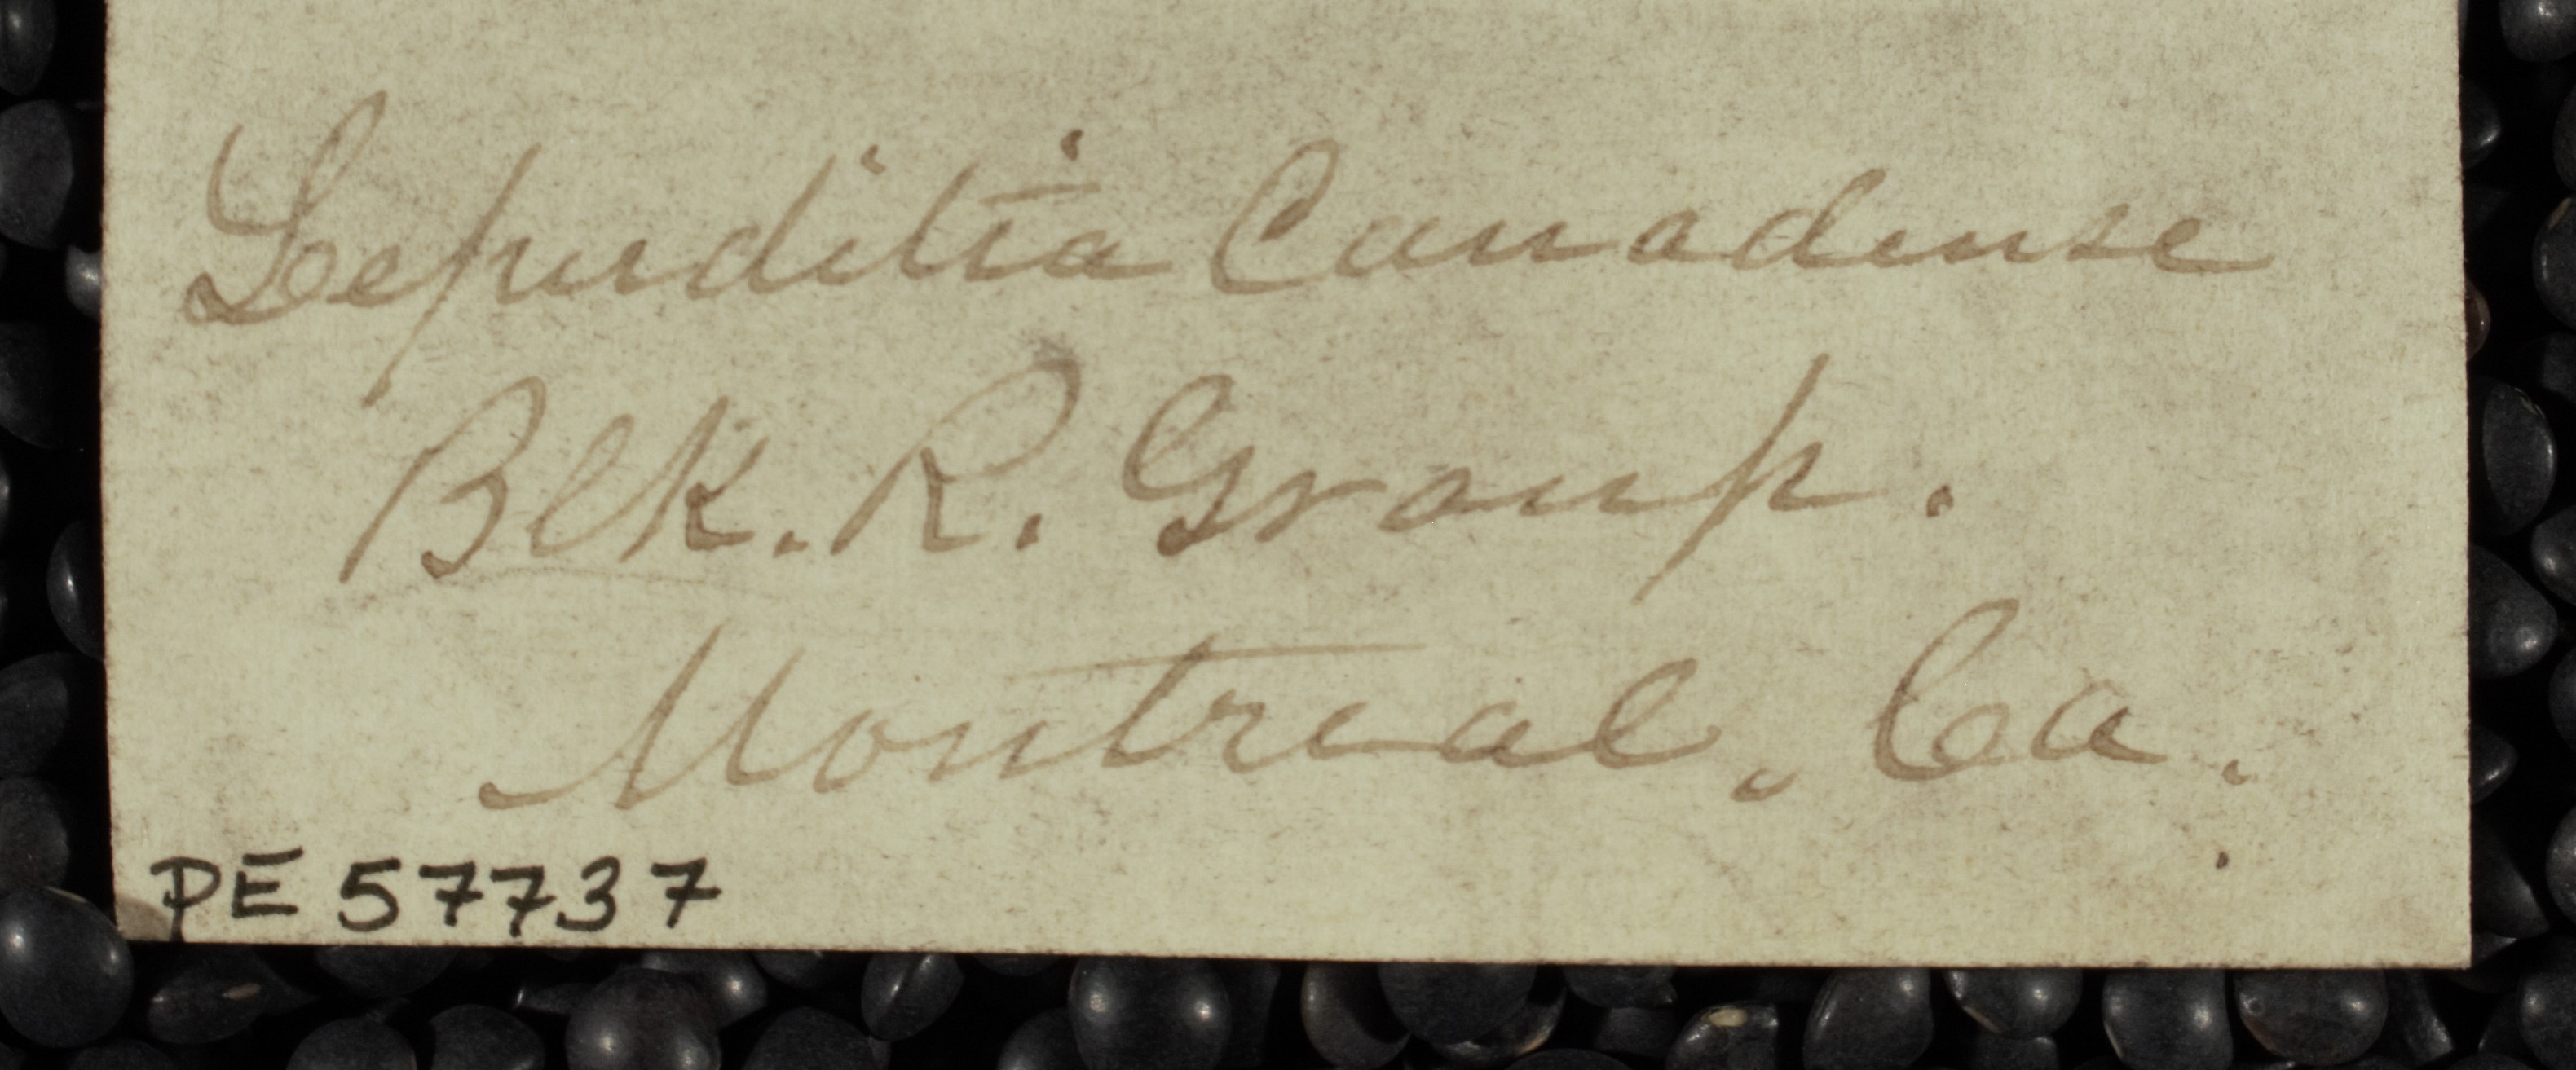 Lepurditia Canadense
Blk. R. Group.
Montreal, Ca.
PE 57737